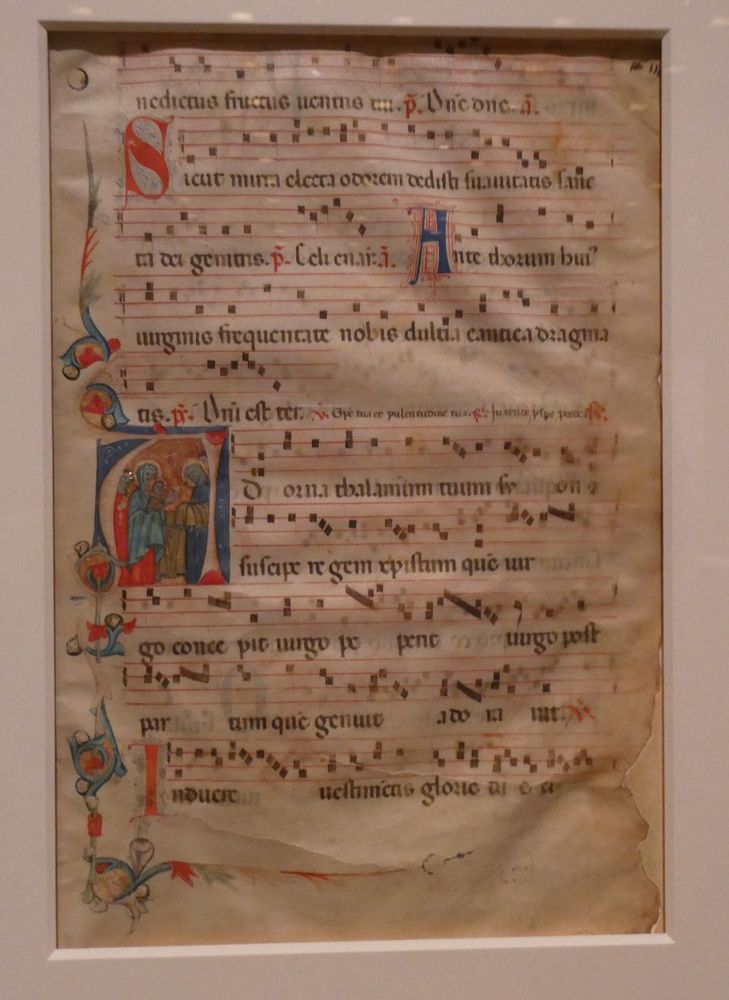 nedictus fructus uentris tui. p̃. Dñe dñe. ã.
Sicut mirra electa odorem dedisti suauitatis sanc
ta dei genitris. p̃. Celi enar̃. ã. Ante thorum huiꝰ
uirginis frequentate nobis dulcia cantica dragma
tis. p̃. Dñi est ter. ṽ. Spe tua et pulcritudine tua.
Ad orna thalamum tuum sy on
suscipe re gem xpistum quē uir
go conce pit uirgo pe perit uirgo post
par tum quē genuit ado ra uit. ṽ.
Induere uestimētis glorie tu e